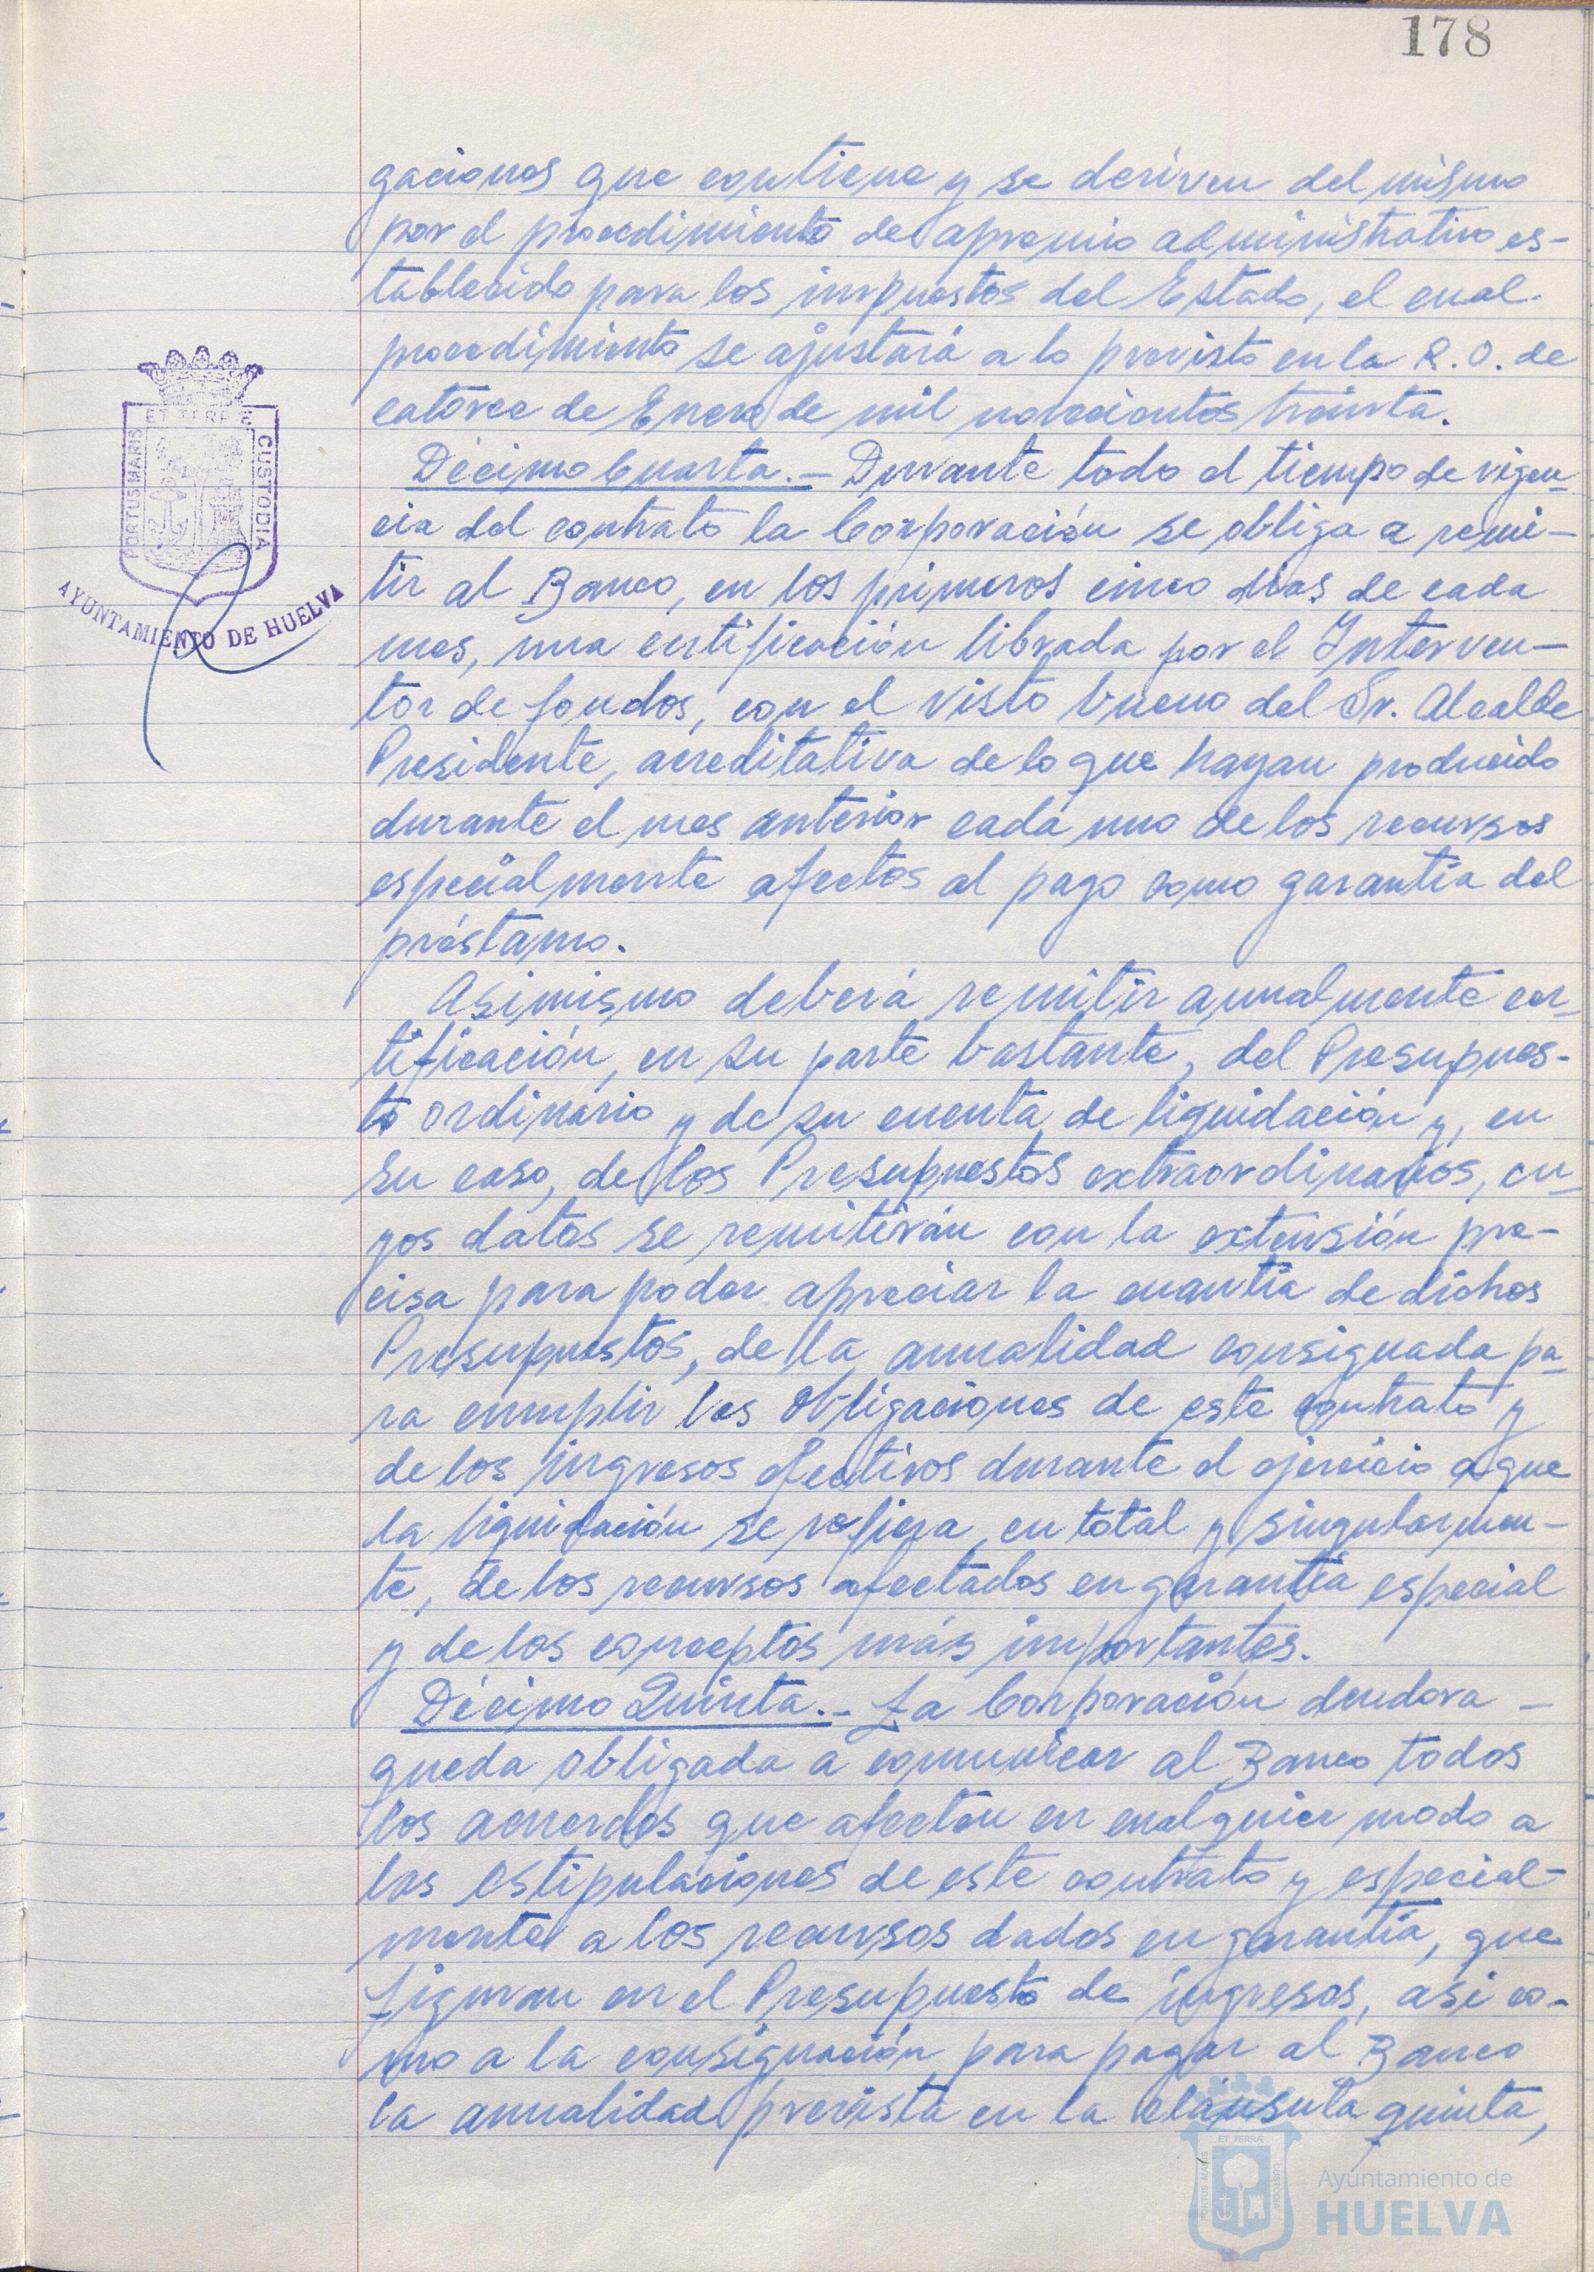 178
gaciones que contiene y se deriven del mismo
por el procedimiento de apremio administrativo es-
tablecido para los impuestos del Estado, el cual
procedimiento se ajustará a lo previsto en la R.O. de
catorce de Enero de mil novecientos treinta.
Décimo Cuarta.- Durante todo el tiempo de vigen-
cia del contrato la Corporación se obliga a remi-
tir al Banco, en los primeros cinco días de cada
mes, una certificación librada por el Interven-
tor de fondos, con el visto bueno del Sr. Alcalde
Presidente, acreditativa de lo que hayan producido
durante el mes anterior cada uno de los recursos
especialmente afectos al pago como garantía del
préstamo.
Asimismo deberá remitir anualmente cer-
tificación, en su parte bastante, del Presupues-
to ordinario y de su cuenta de liquidación y, en
su caso, de los Presupuestos extraordinarios, cu-
yos datos se remitirán con la extensión pre-
cisa para poder apreciar la cuantía de dichos
Presupuestos, de la anualidad consignada pa-
ra cumplir las obligaciones de este contrato y
de los ingresos efectivos durante el ejercicio a que
la liquidación se refiera, en total y singularmen-
te, de los recursos afectados en garantía especial
y de los conceptos más importantes.
Décimo Quinta.- La Corporación deudora -
queda obligada a comunicar al Banco todos
los acuerdos que afecten en cualquier modo a
las estipulaciones de este contrato y especial-
mente a los recursos dados en garantía, que
figuran en el Presupuesto de ingresos, así co-
mo a la consignación para pagar al Banco
la anualidad prevista en la cláusula quinta,
PORTUS MARIS
ET TERRE
CUSTODIA
AYUNTAMIENTO DE HUELVA
PORTUS MARIS
ET TERRÆ
CUSTODIA
Ayuntamiento de
HUELVA